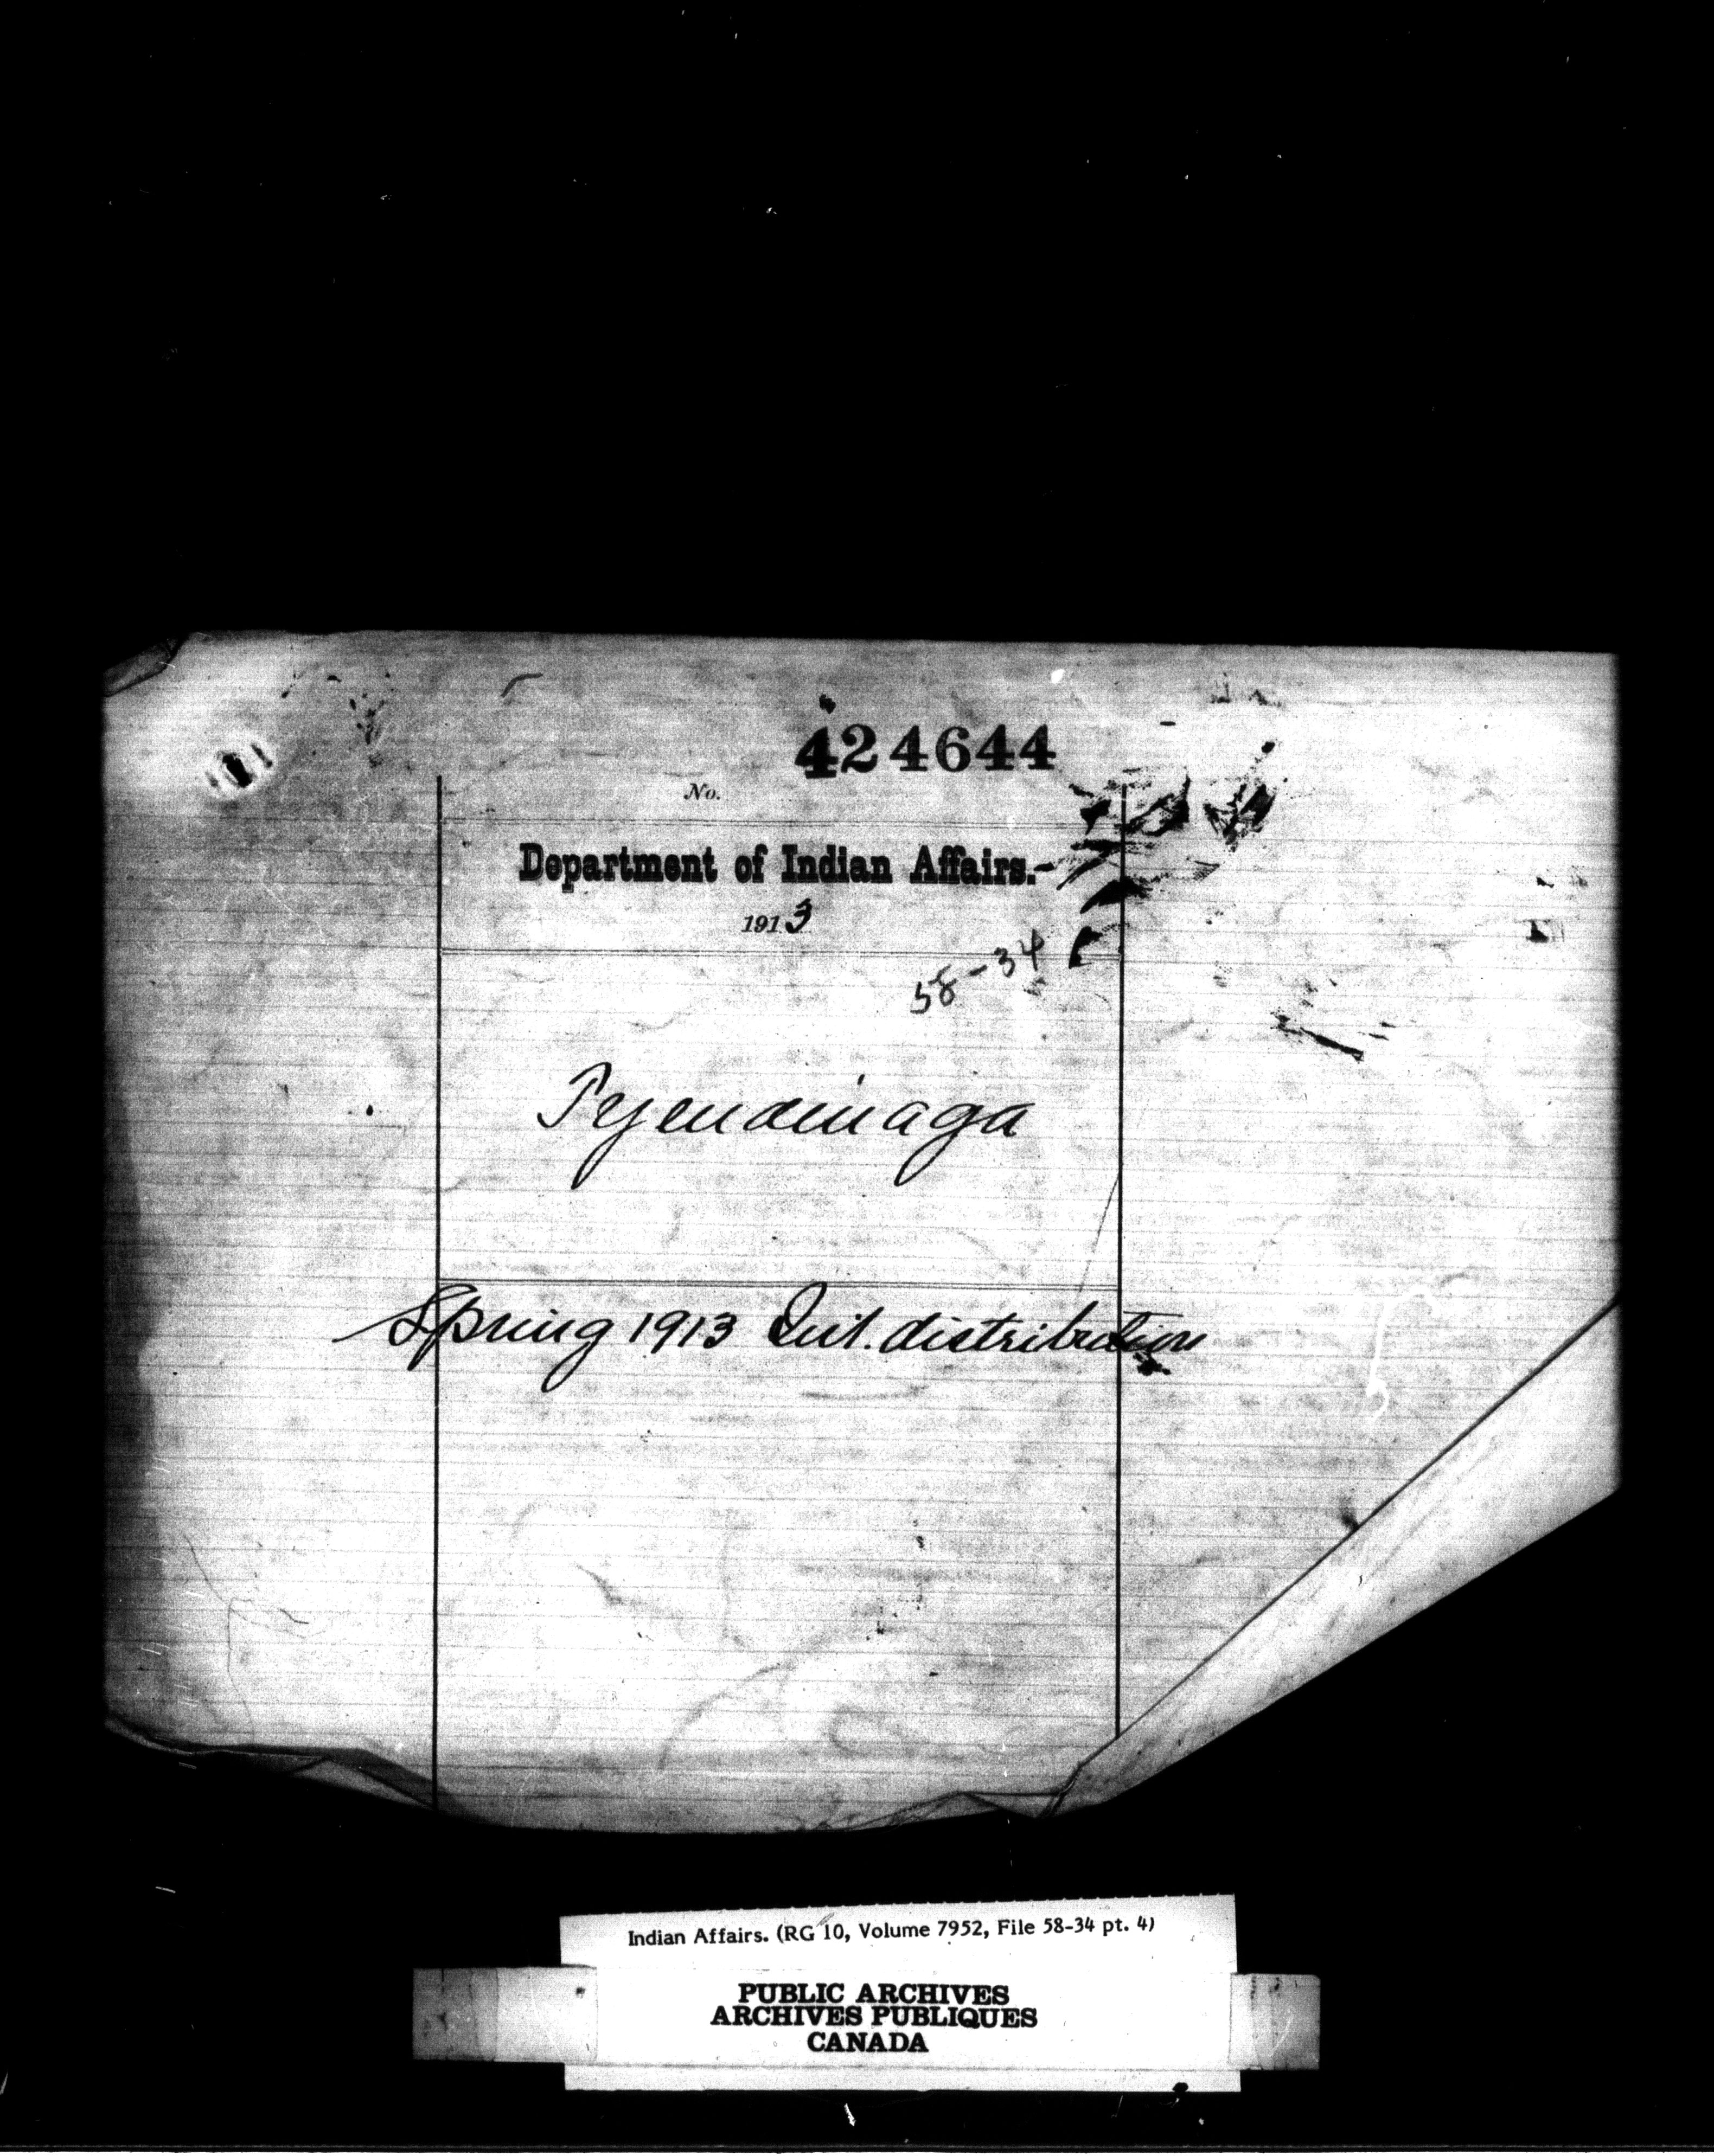 424644
No.
Department of Indian Affairs.-
1913
58-34
Tyendinaga
Spring 1913 Int. distribution
Indian Affairs. (RG 10, Volume 7952, File 58-34 pt. 4)
PUBLIC ARCHIVES
ARCHIVES PUBLIQUES
CANADA